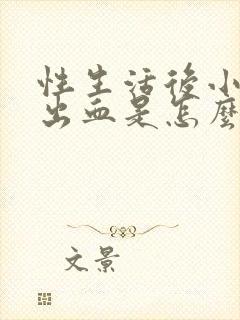 性生活後小
出血是怎麼
文景